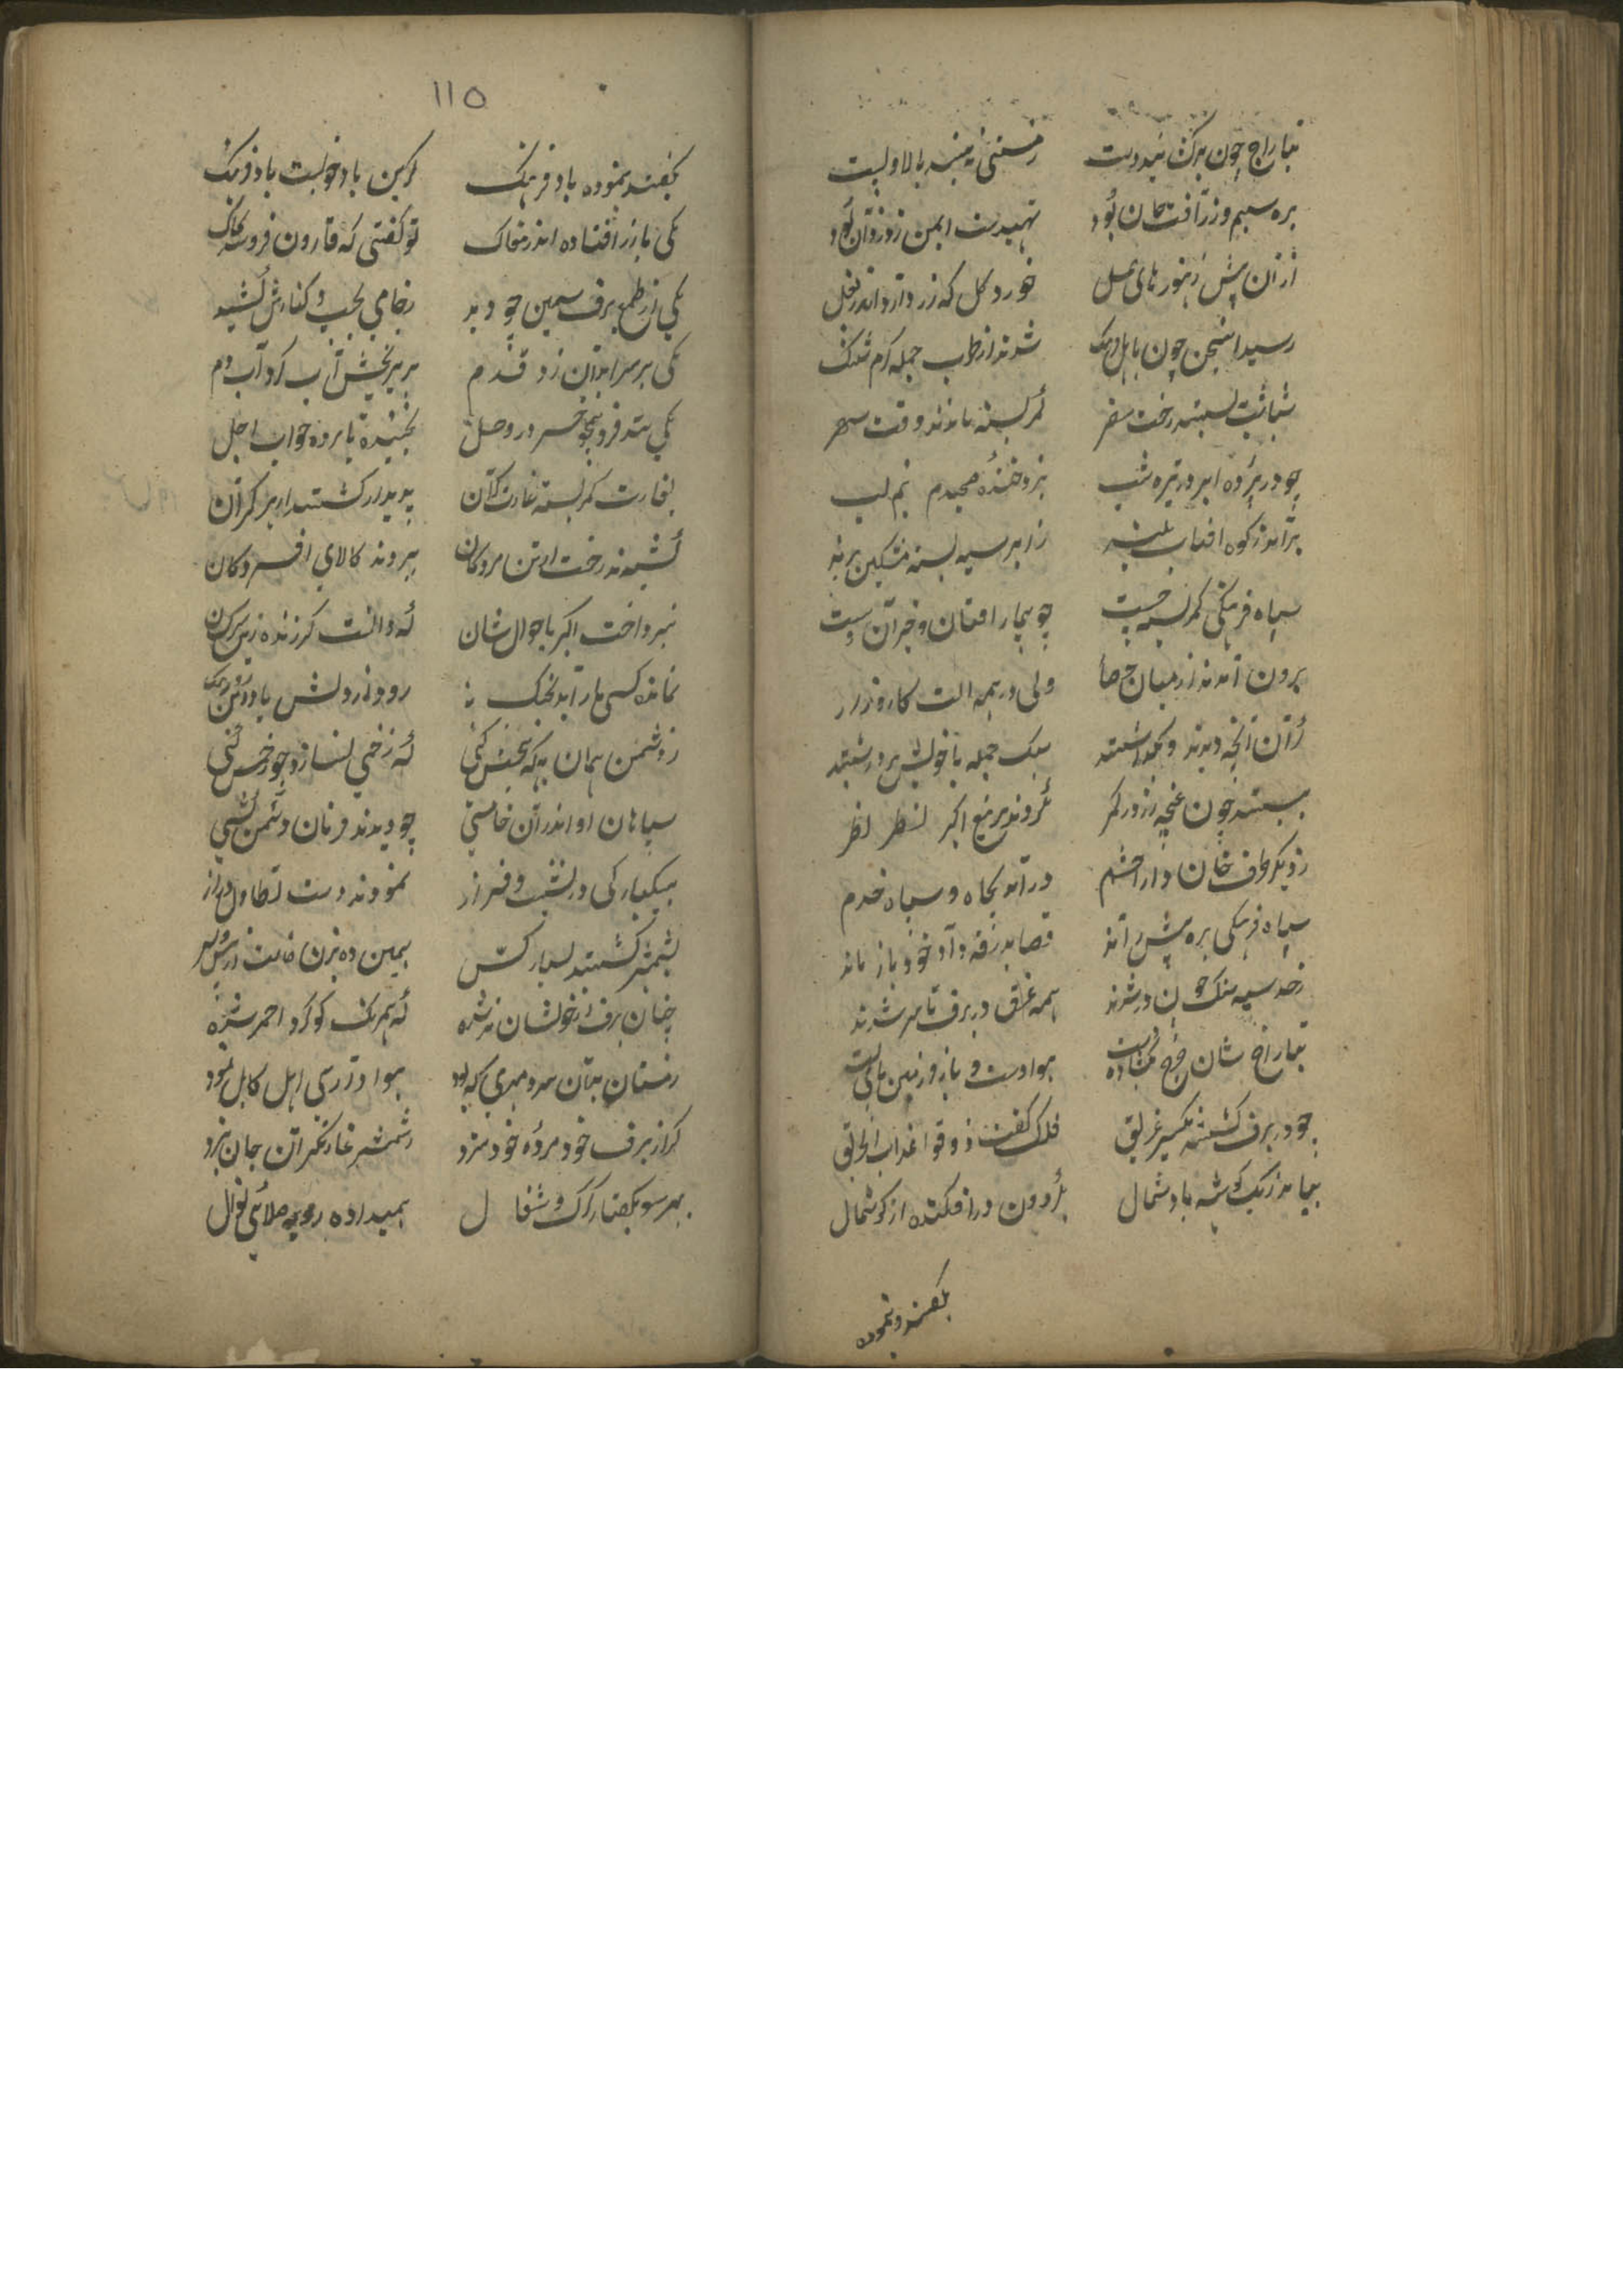 بتاراج چون برک بیدوست زمستی نمیبه بالا و پست
بره سیم و زر آفت جان بود تهیدست ایمن ز دزدان بود
ازان پیش زنبور های عسل خورد کل که زر دارد اندر بغل
رسید این سخن چون باهل فرنک شدند از طرب جمله کرم شلنک
شباشب ببستند رخت سفر کمر بسته ماندند وقت سحر
چو در پرده ابر در تیره شب بزد خنده صبحدم نیم لب
برآمد ز کوه آفتاب بلند ز ابر سیه بسته مشکین پرند
سپاه فرنکی کمر بسته چست چو بیمار افتان و خیزان و سست
برون آمدند از میان حصار ولی در همه آلت کارزار
ازان آنچه دیدند و بکذاشتند سبک جمله با خویش برداشتند
ببستند چون غنچه زر در کمر نکردند بر تیغ اکبر نظر
ز دیکر طرف خان دارا حشم درآمد بجاه و سپاه خدم
سپاه فرنکی بره پیش راند قضا بدرقه داد و خود باز ماند
ز حد سیه سنک چون در شدند همه غرق در برف تا سر شدند
بتاراج شان چرخ بکشاده دست هوا دست و بازو زمین پای بست
چو در برف کشتند یکسر غریق فلک کفت ذوقوا عذاب الحریق
بیامد ز یک کوشه باد شمال بکردون درافکنده از کوشمال
بکفتند و نموده
۱۱۵
بکفتند نموده باد فرنک کزین باد خوبست باد فرنک
یکی با زر افتاده اندر مغاک تو کفتی که قارون فرو شد بخاک
یکی از طمع برف سیمین چو دید ز خامی بجیب و کنارش کشید
یکی بر سر آبدان زد قدم بزیر یخش آب کرد آب و دم
یکی شد فرو همچو خر در وحل بجنبنده نابرده خواب اجل
بغارت کمر بسته غارتکران پدیدار کشتند از هر کران
کشیدند رخت از تن مردکان ببردند کالای افسردکان
نپرداخت اکبر باحوال شان که دانست کرزنده زین سر کران
نمانده کسی را برآید بجنک رود از دلش باد
ز دشمن همان به که بیخش کنی که زخمی نسازد چو زخمش کنی
سپاهان او اندر آن خامشی چو دیدند فرمان دشمن کشی
بیکبارکی در نشیب و فراز نمودند دست تطاول دراز
بشمشیر کشتند بسیار کس
چنان برف از خونشان تر شده که همرنک کوکرد احمر شده
زمستان بتان سرد مهری که بود هوا در آن سی اهل کابل نمود
کر از برف خود مرده خود مزد ز شمشیر غارتکران جان نبرد
بهر سو بکفتار کرک و شغال همیداده روبه صلای نوال